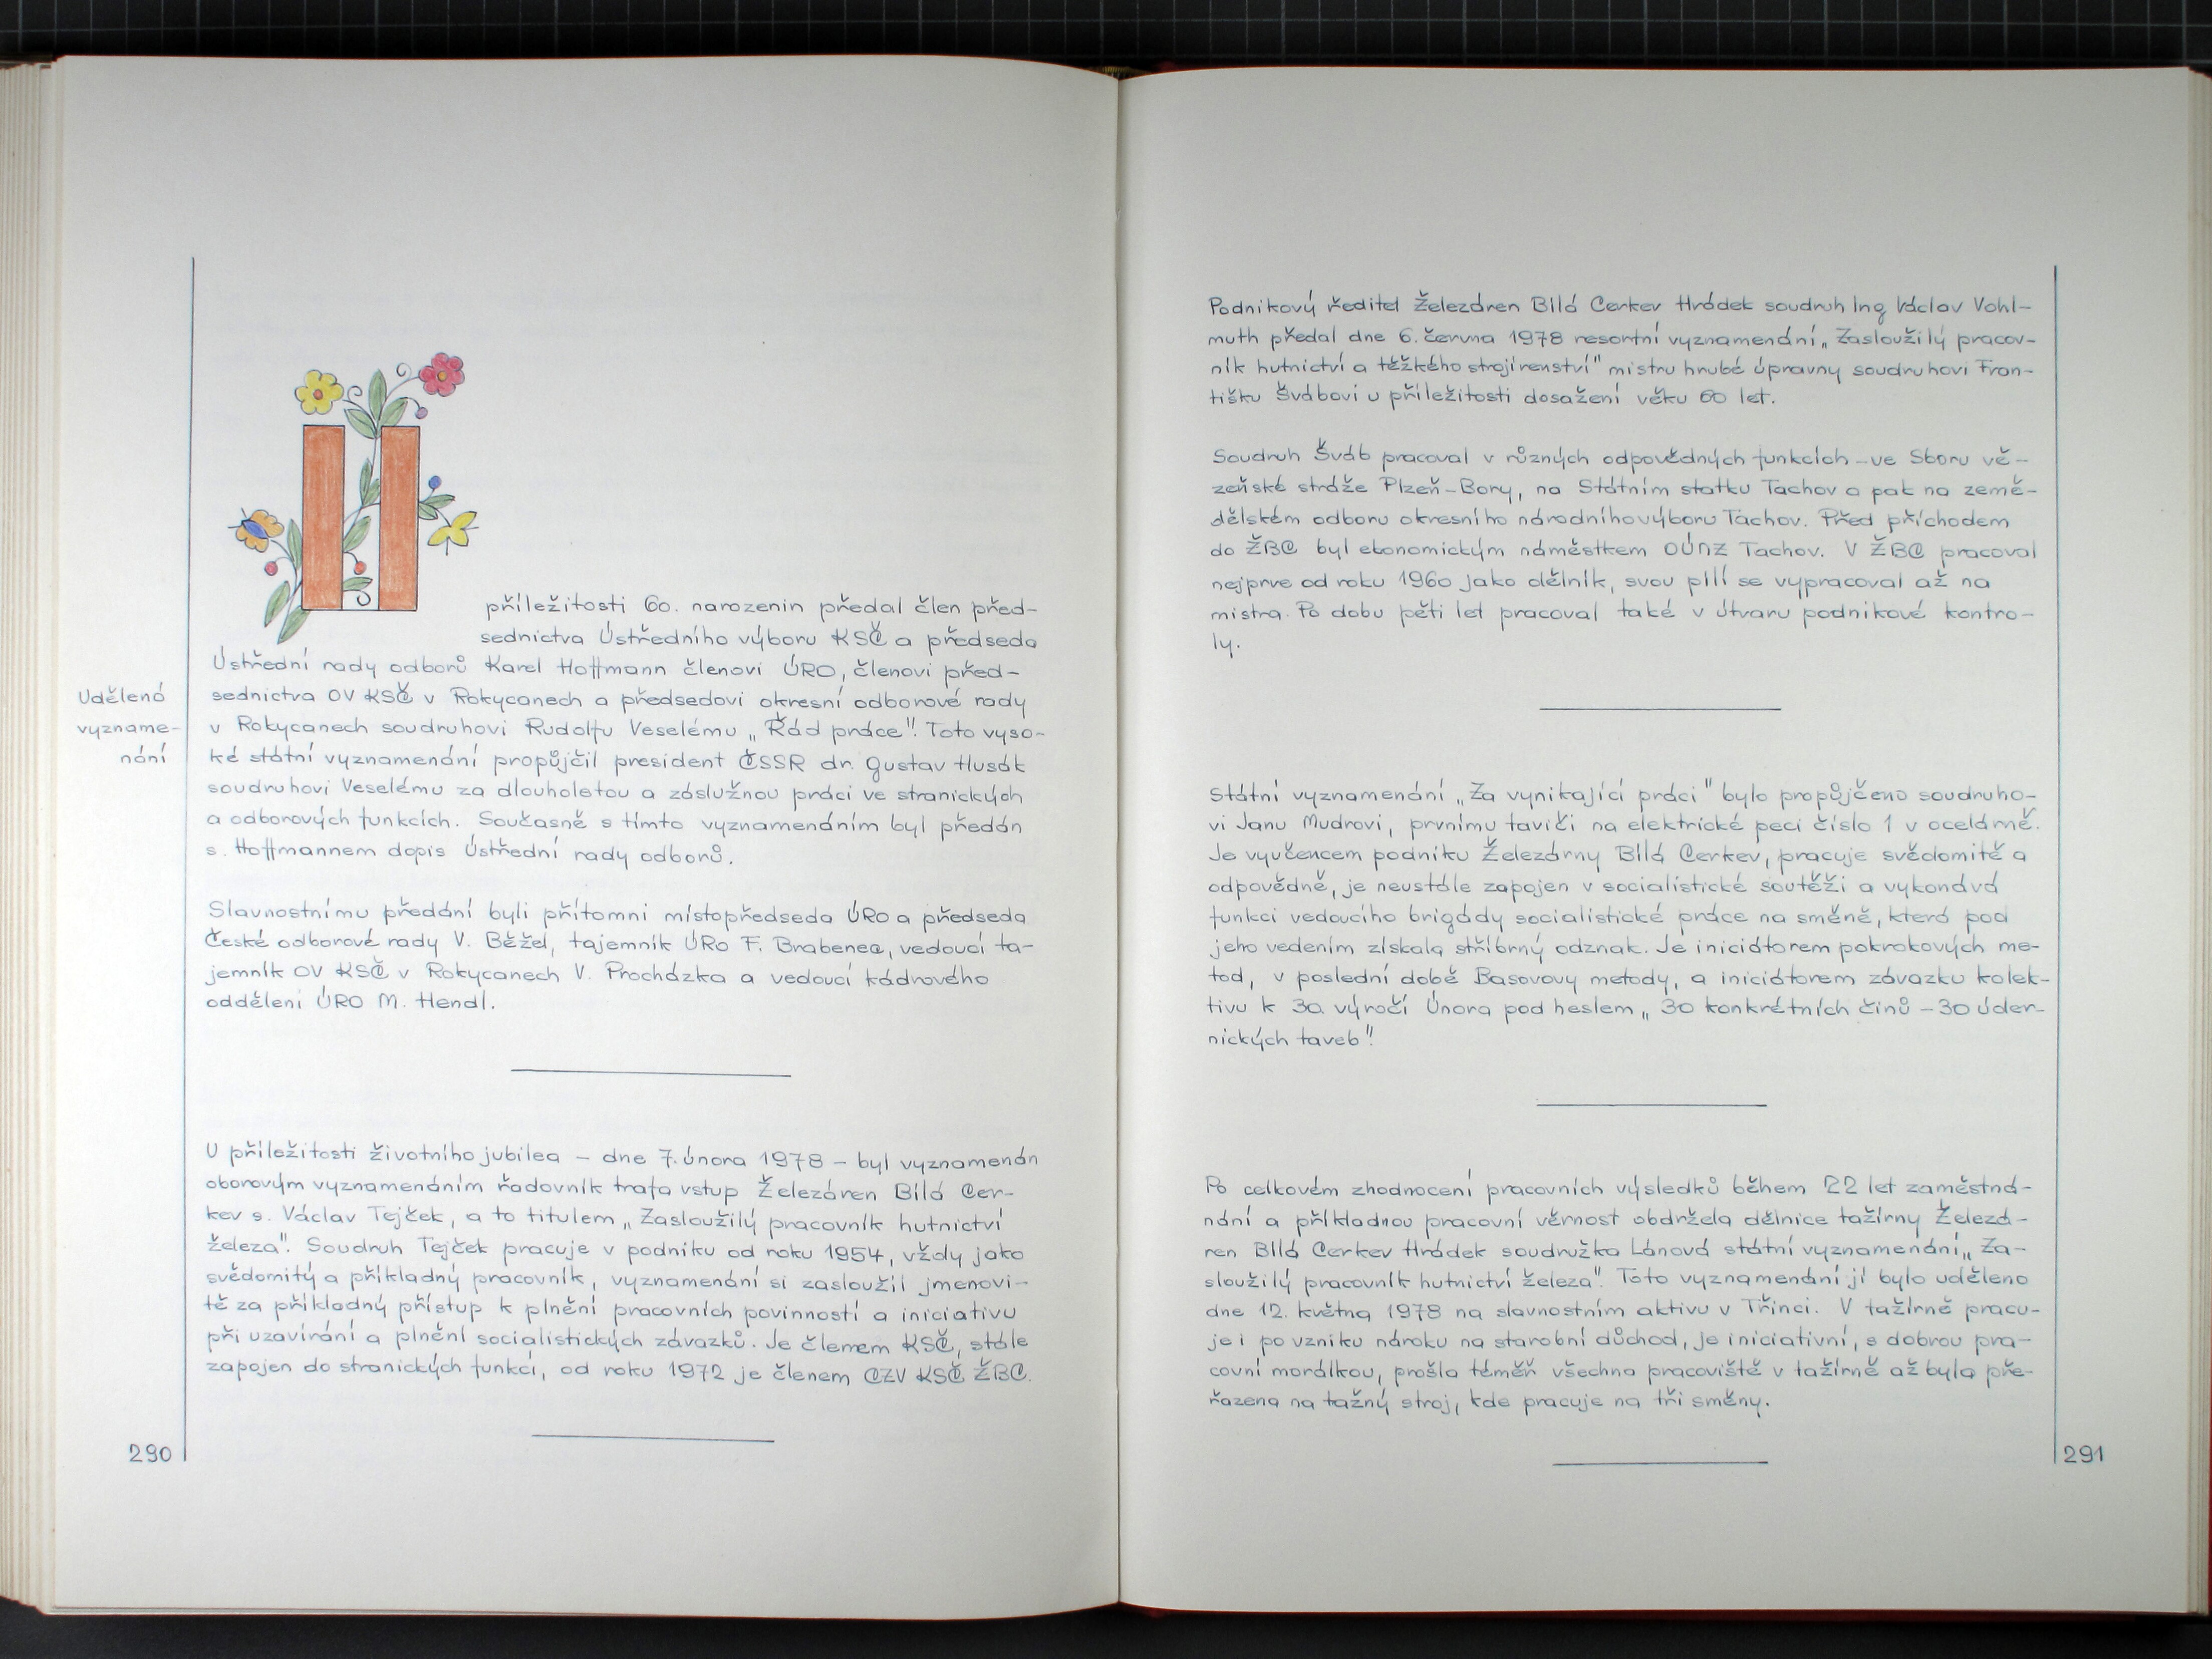 U
příležitosti 60. narozenin předal člen před-
sednictva Ústředního výboru KSČ a předseda
Ústřední rady odborů Karel Hoffmann členovi ÚRO, členovi před-
sednictva OV KSČ v Rokycanech a předsedovi okresní odborové rady
v Rokycanech soudruhovi Rudolfu Veselému „Řád práce". Toto vyso-
ké státní vyznamenání propůjčil president ČSSR dr. Gustav Husák
soudruhovi Veselému za dlouholetou a záslužnou práci ve stranických
a odborových funkcích. Současně s tímto vyznamenáním byl předán
s. Hoffmannem dopis Ústřední rady odborů.
Udělená
vyzname-
nání
Slavnostnímu předání byli přítomni místopředseda ÚRO a předseda
České odborové rady V. Běžel, tajemník ÚRO F. Brabenec, vedoucí ta-
jemník OV KSČ v Rokycanech V. Procházka a vedoucí kádrového
oddělení ÚRO M. Hendl.
U příležitosti životního jubilea – dne 7. února 1978 – byl vyznamenán
oborovým vyznamenáním řadovník trafa vstup Železáren Bílá Cer-
kev s. Václav Tejček, a to titulem „Zasloužilý pracovník hutnictví
železa". Soudruh Tejček pracuje v podniku od roku 1954, vždy jako
svědomitý a příkladný pracovník, vyznamenání si zasloužil jmenovi-
tě za příkladný přístup k plnění pracovních povinností a iniciativu
při uzavírání a plnění socialistických závazků. Je členem KSČ, stále
zapojen do stranických funkcí, od roku 1972 je členem CZV KSČ ŽBC.
290
Podnikový ředitel Železáren Bílá Cerkev Hrádek soudruh Ing Václav Vohl-
muth předal dne 6. června 1978 resortní vyznamenání „Zasloužilý pracov-
ník hutnictví a těžkého strojírenství" mistru hrubé úpravny soudruhovi Fran-
tišku Švábovi u příležitosti dosažení věku 60 let.
Soudruh Šváb pracoval v různých odpovědných funkcích – ve Sboru vě-
zeňské stráže Plzeň – Bory, na Státním statku Tachov a pak na země-
dělském odboru okresního národního výboru Tachov. Před příchodem
do ŽBC byl ekonomickým náměstkem OÚNZ Tachov. V ŽBC pracoval
nejprve od roku 1960 jako dělník, svou pílí se vypracoval až na
mistra. Po dobu pěti let pracoval také v útvaru podnikové kontro-
ly.
Státní vyznamenání „Za vynikající práci" bylo propůjčeno soudruho-
vi Janu Mudrovi, prvnímu taviči na elektrické peci číslo 1 v ocelárně.
Je vyučencem podniku Železárny Bílá Cerkev, pracuje svědomitě a
odpovědně, je neustále zapojen v socialistické soutěži a vykonává
funkci vedoucího brigády socialistické práce na směně, která pod
jeho vedením získala stříbrný odznak. Je iniciátorem pokrokových me-
tod, v poslední době Basovovy metody, a iniciátorem závazku kolek-
tivu k 30. výročí Února pod heslem „30 konkrétních činů – 30 úder-
nických taveb".
Po celkovém zhodnocení pracovních výsledků během 22 let zaměstná-
nání a příkladnou pracovní věrnost obdržela dělnice tažírny Železá-
ren Bílá Cerkev Hrádek soudružka Lánová státní vyznamenání „Za-
sloužilý pracovník hutnictví železa". Toto vyznamenání jí bylo uděleno
dne 12. května 1978 na slavnostním aktivu v Třinci. V tažírně pracu-
je i po vzniku nároku na starobní důchod, je iniciativní, s dobrou pra-
covní morálkou, prošla téměř všechna pracoviště v tažírně až byla pře-
řazena na tažný stroj, kde pracuje na tři směny.
291